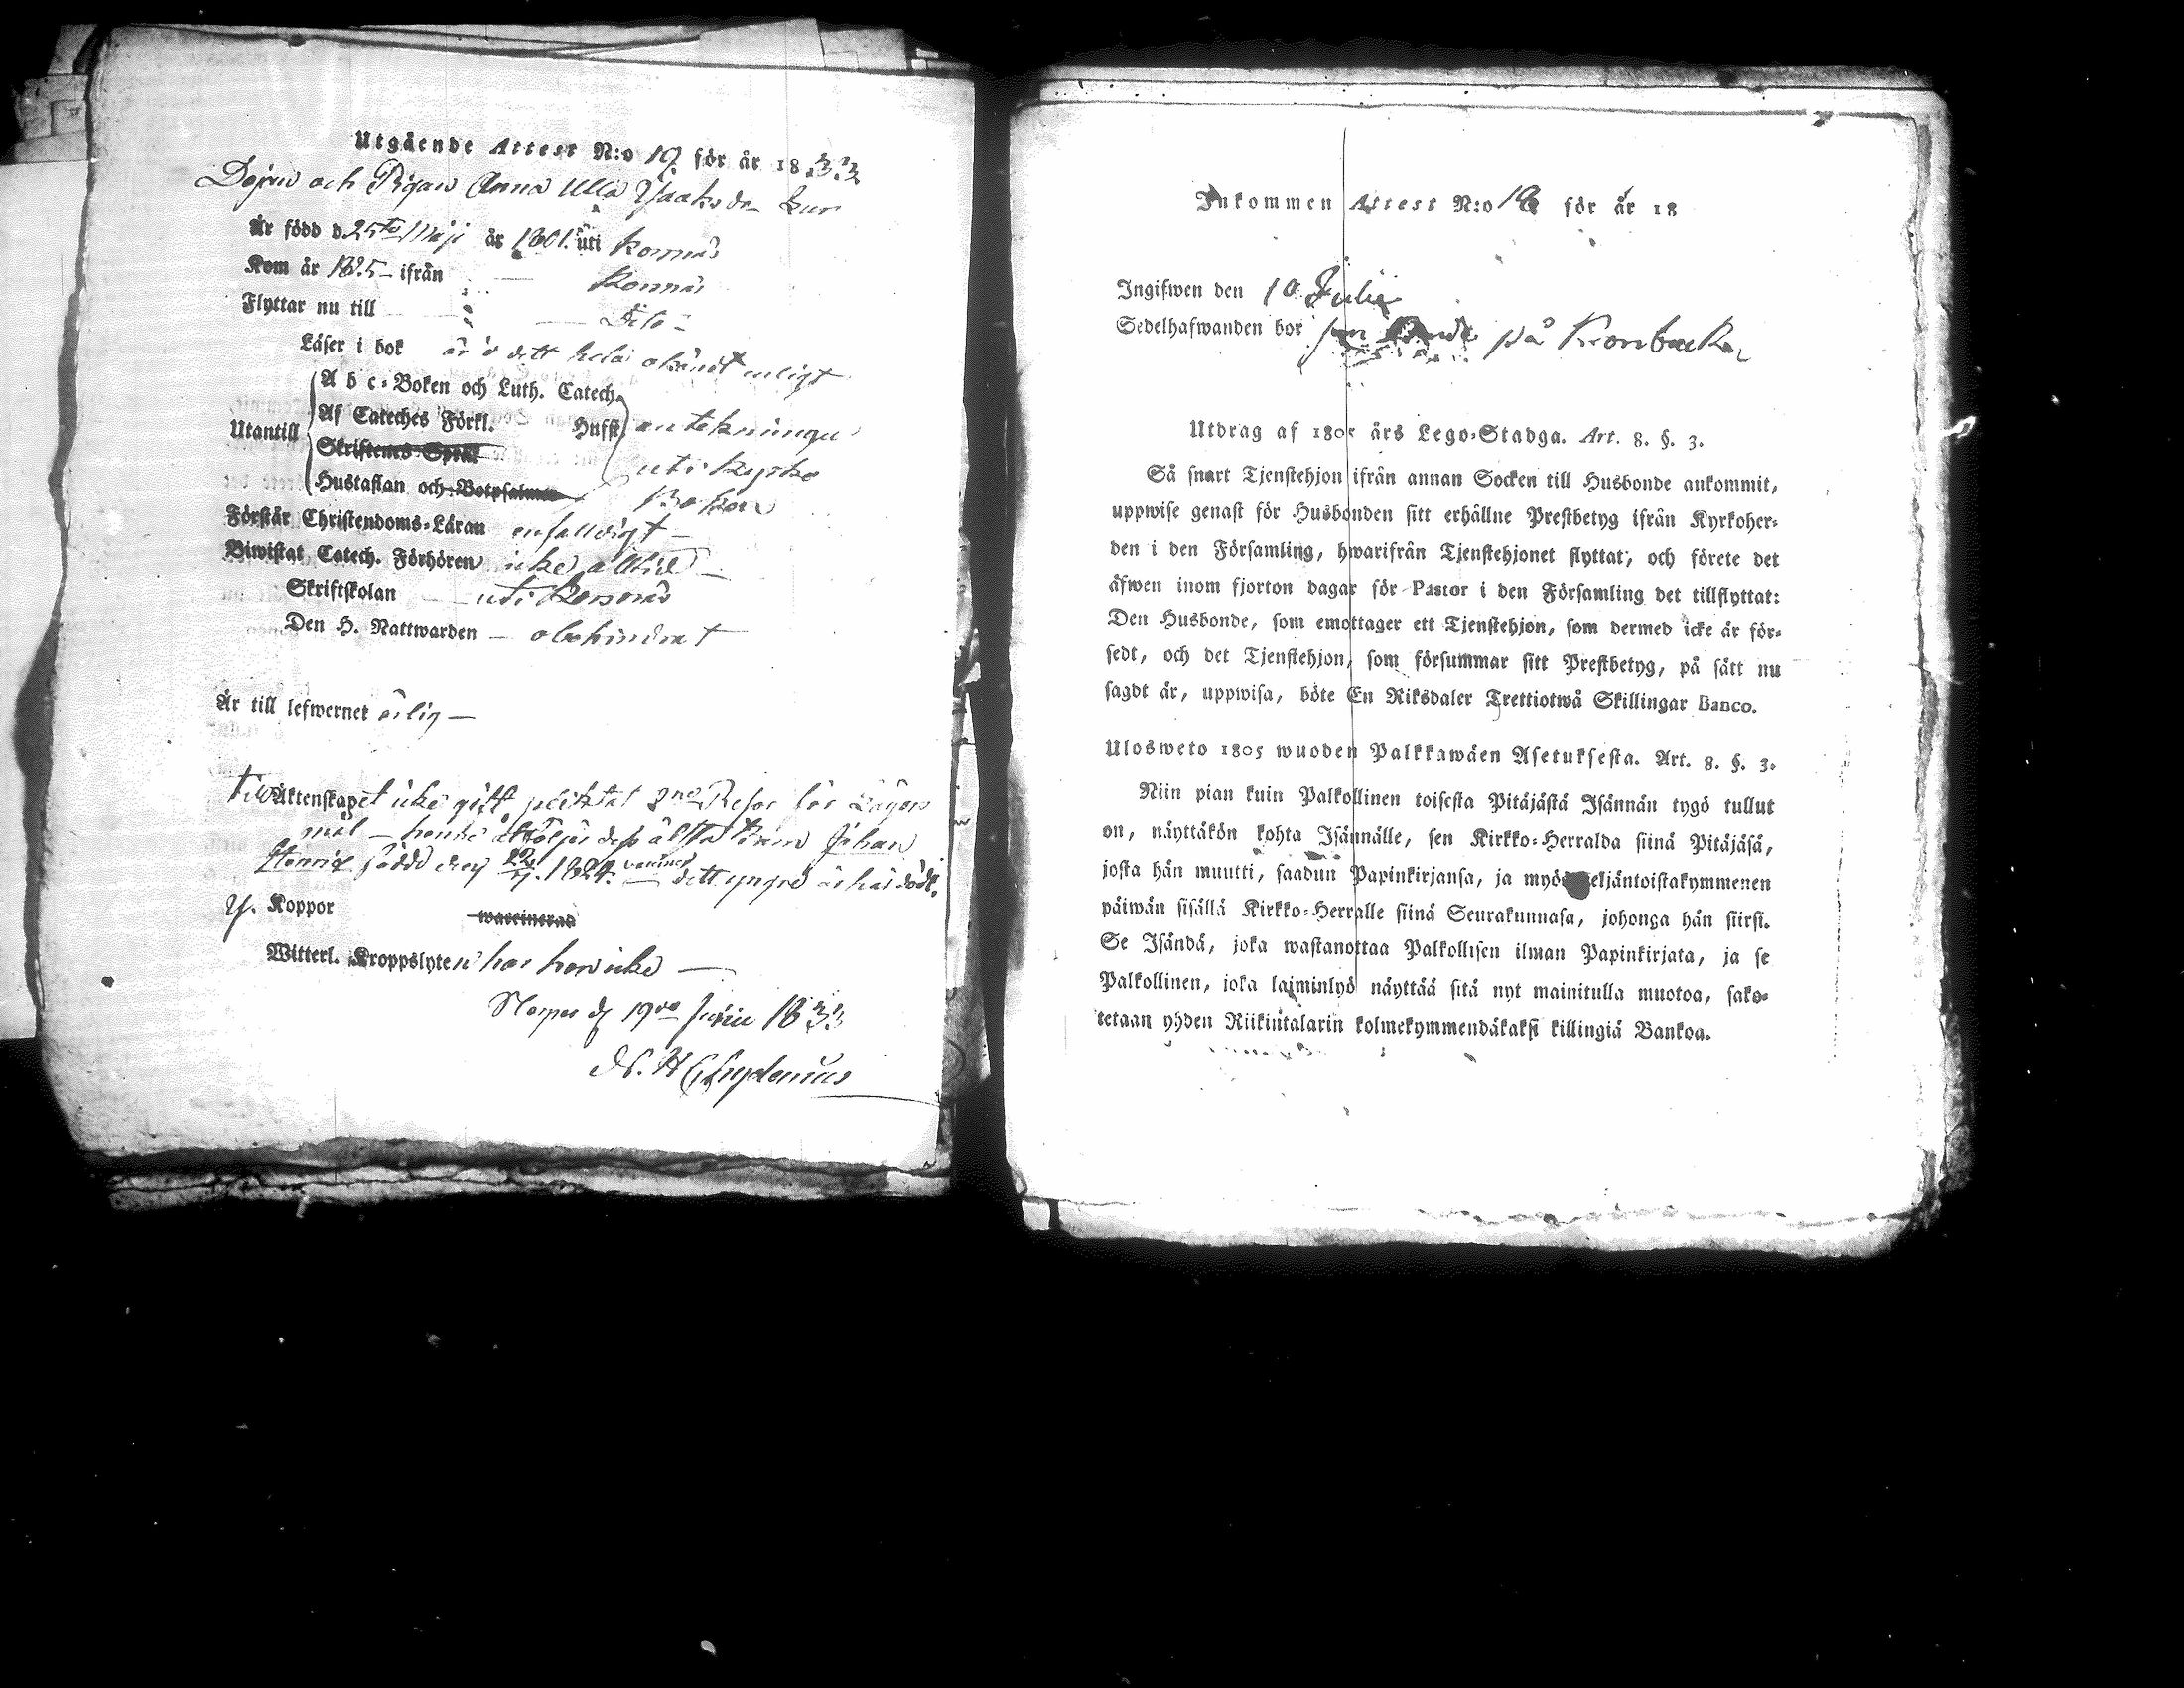 Utgående Attest N:o 19 för år 1833
och Pigan Anna Ulla
Är född d 25te Maji år 1801 uti Korsnäs
Kom år 1825 ifrån Korsnäs
Flyttar nu till Dito
Läser i bok enligt
A b c-Boken och Luth. Catech.
Af Cateches Förkl. Husst. antekningen
Utantill
Skriftenes Språk uti Kyrko
Hustaflan och Botpsalmen Boken
Förstår Christendoms-Läran enfalldigt
Biwistat Catech. Förhören icke alltid
Skriftskolan uti Korsnäs
Den H. Nattwarden obehindrat
Är till lefwernet ärlig
till Äktenskapet icke gift pliktat 2ne Resor för Lägers
mål – henne åtföljer dess älsta barn Johan
Henric född den 1824. dett yngre är här dödt.
Koppor waccinerad
Witterl. Kroppslyten har hon icke
d 19de Junii 1833
Chydenius
Inkommen Attest N:o för år 18
Ingifwen den 10 Julii
Sedelhafwanden bor på Kronbacka
Utdrag af 1805 års Lego-Stadga. Art. 8. §. 3.
Så snart Tjenstehjon ifrån annan Socken till Husbonde ankommit,
uppwise genast för Husbonden sitt erhållne Prestbetyg ifrån Kyrkoher-
den i den Församling, hwarifrån Tjenstehjonet flyttat, och förete det
äfwen inom fjorton dagar för Pastor i den Församling det tillflyttat:
Den Husbonde, som emottager ett Tjenstehjon, som dermed icke är för-
sedt, och det Tjenstehjon, som försummar sitt Prestbetyg, på sätt nu
sagdt är, uppwisa, böte En Riksdaler Trettiotwå Skillingar Banco.
Ulosweto 1805 wuoden Palkkawäen Asetuksesta. Art. 8. §. 3.
Niin pian kuin Palkollinen toisesta Pitäjästä Isännän tygö tullut
on, näyttäkön kohta Isännälle, sen Kirkko-Herralda siinä Pitäjäsä,
josta hän muutti, saadun Papinkirjansa, ja myös neljäntoistakymmenen
päiwän sisällä Kirkko-Herralle siinä Seurakunnasa, johonga hän siirsi.
Se Isändä, joka wastanottaa Palkollisen ilman Papinkirjata, ja se
Palkollinen, joka laiminlyö näyttää sitä nyt mainitulla muotoa, sako-
tetaan yhden Riikintalarin kolmekymmendäkaksi killingiä Bankoa.